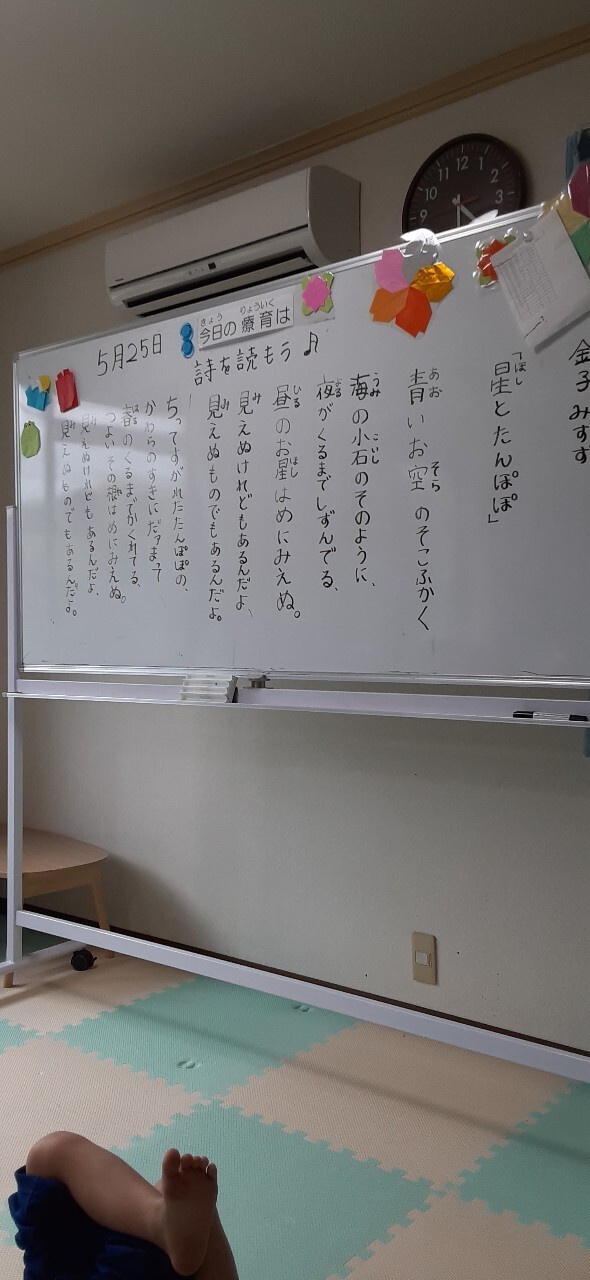 5月25日
今日の療育は
きょう りょういく
詩を読もう♪
金子みすず
「星とたんぽぽ」
ほし
青いお空のそこふかく
あお そら
海の小石のそのように、
うみ こいし
夜がくるまでしずんでる、
よる
昼のお星はめにみえぬ。
ひる ほし
見えぬけれどもあるんだよ、
み
見えぬものでもあるんだよ。
み
ちってすがれたたんぽぽの、
かわらのすきにだァまって
春のくるまでかくれてる、
はる
つよいその根はめにみえぬ。
見えぬけれどもあるんだよ、
み
見えぬものでもあるんだよ。
み
10 11 12 1 2 3 9